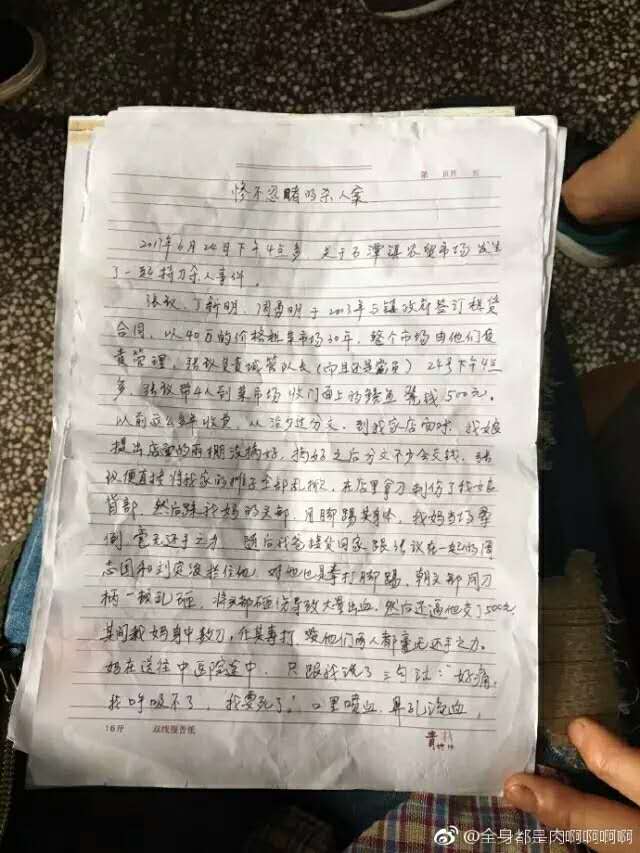 第 页共 页
惨不忍睹的杀人案
2017年6月24日下午4点多 关于石潭镇农贸市场发生
了一起持刀杀人事件。
张议、丁新明、周勇明于2013年与镇政府签订租赁
合同,以40万的价格租菜市场30年,整个市场由他们负
责管理,张议是责城管队长(而且还是党员) 24号下午4点
多,张议带4人到菜市场收门面上的 钱500元。
以前这么多年收费,从没少过分文,到我家店面时,我娘
提出店面的雨棚没搞好,搞好之后分文不少会交钱,张
议便直接将我家的摊子全部乱掀,在店里拿刀刺伤了我娘
背部,然后踩我妈的头部,用脚踢其身体,我妈当场晕
倒 毫无还手之力 随后我爸接货回家,跟张议在一起的周
志国和刘 按住他,对他也是拳打脚踢,朝头部用刀
柄一顿乱砸,将头部砸伤导致大量出血,然后还逼他交了500元
其间我妈身中数刀,在其毒打 两人都毫无还手之力。
妈在送往中医院途中,只跟我说了三句话:"好痛,
我呼吸不了,我要死了。"口里喷血,鼻孔流血,
16开 双线报告纸
@全身都是肉啊啊啊啊啊